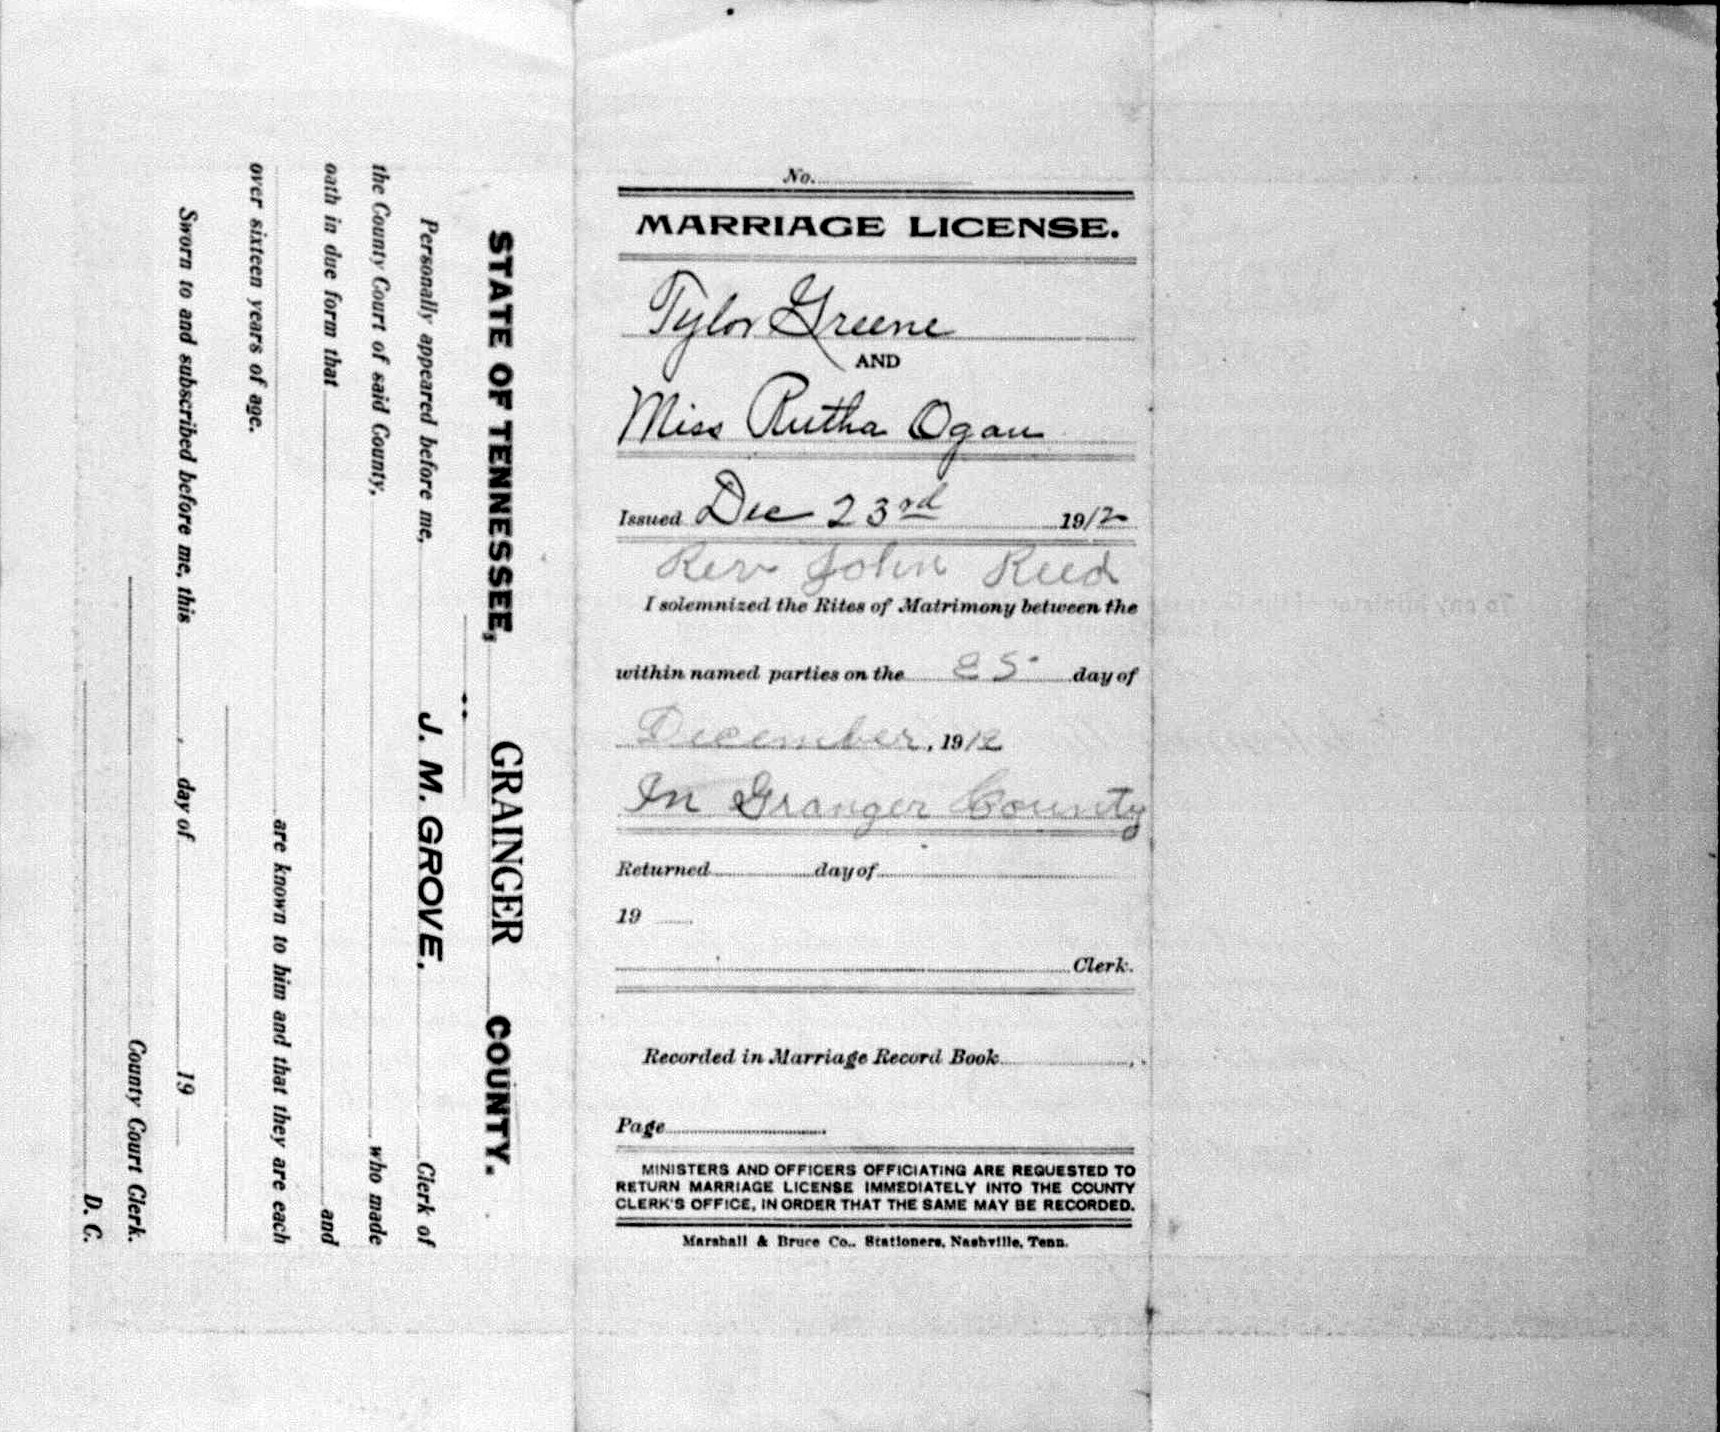 STATE OF TENNESSEE, GRAINGER COUNTY.
Personally appeared before me, J. M. GROVE. Clerk of
the County Court of said County, who made
oath in due form that and
are known to him and that they are each
over sixteen years of age.
Sworn to and subscribed before me, this , day of 19
County Court Clerk.
D. C.
No.
MARRIAGE LICENSE.
Tylor Greene
AND
Miss Rutha Ogan
Issued Dec 23rd 1912
Rev John Reed
I solemnized the Rites of Matrimony between the
within named parties on the 25 day of
December, 1912
In Granger County
Returned day of
19
Clerk.
Recorded in Marriage Record Book ,
Page
MINISTERS AND OFFICERS OFFICIATING ARE REQUESTED TO
RETURN MARRIAGE LICENSE IMMEDIATELY INTO THE COUNTY
CLERK'S OFFICE, IN ORDER THAT THE SAME MAY BE RECORDED.
Marshall & Bruce Co., Stationers, Nashville, Tenn.